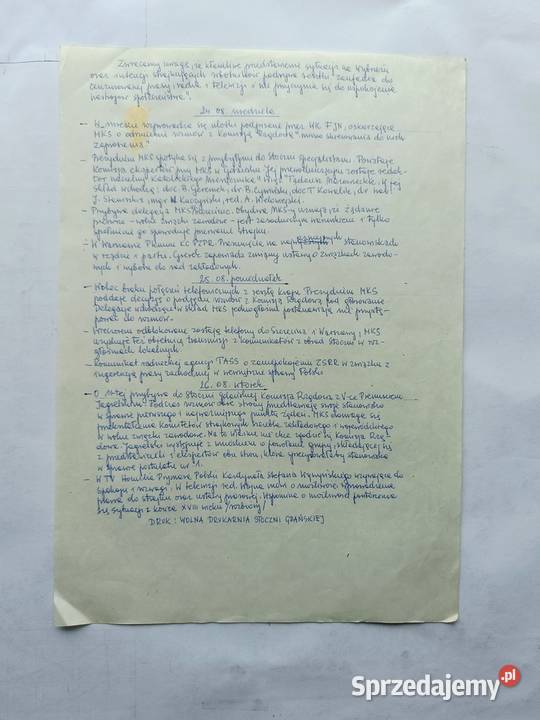 Zwracamy uwagę, że kłamliwe przedstawianie sytuacji na Wybrzeżu
oraz intencji strajkujących robotników podrywa resztki zaufania do
cenzurowanej prasy, radia i telewizji i nie przyczynia się do uspokojenia
nastrojów społeczeństwa!
24.08. niedziela
- W mieście rozprowadza się ulotki podpisane przez WK FJN, oskarżające
MKS o odmówienie rozmów z Komisją Rządową "mimo skierowania do nich
zaproszenia"
- Prezydium MKS spotyka się z przybyłymi do Stoczni specjalistami. Powstaje
Komisja ekspertów przy MKS w Gdańsku. Jej przewodniczącym zostaje redak-
tor naczelny katolickiego miesięcznika "Więź" Tadeusz Mazowiecki. W jej
skład wchodzą: doc. B. Geremek, dr B. Cywiński, doc T. Kowalik, dr hab.
J. Staniszkis, mgr W. Kuczyński, red. A. Wielowieyski.
- Przybywa delegacja MKS Szczecin. Obydwa MKS-y uznają, że żądanie
pierwsze - wolne związki zawodowe - jest zasadniczym warunkiem i tylko
spełnienie go spowoduje przerwanie strajku.
- W Warszawie Plenum CC PZPR. Przesunięcia na najwyższych stanowiskach
w rządzie i partii. Gierek zapowiada zmiany ustawy o związkach zawodo-
wych i wybory do rad zakładowych.
25.08. poniedziałek
- Wobec braku połączeń telefonicznych z resztą kraju Prezydium MKS
poddaje decyzję o podjęciu rozmów z Komisją Rządową pod głosowanie.
Delegacje wchodzące w skład MKS jednogłośnie postanawiają nie przystę-
pować do rozmów.
- Wieczorem odblokowane zostają telefony do Szczecina i Warszawy; MKS
uzyskuje też obietnicę transmisji z komunikatów z obrad Stoczni w roz-
głośniach lokalnych.
- Komunikat radzieckiej agencji TASS o zaniepokojeniu ZSRR w związku z
ingerencją prasy zachodniej w wewnętrzne sprawy Polski
26.08. wtorek
- O 11-tej przybywa do Stoczni Gdańskiej Komisja Rządowa z V-ce Premierem
Jagielskim. Podczas rozmów obie strony przedstawiają swoje stanowisko
w sprawie pierwszego i najważniejszego punktu żądań. MKS domaga się
przekształcenia Komitetów strajkowych szczebla zakładowego i wojewódzkiego
w wolne związki zawodowe. Na to wszakże nie chce zgodzić się Komisja Rzą-
dowa. Jagielski występuje z wnioskiem o powołanie grupy, składającej się
z przedstawicieli i ekspertów obu stron, która sprecyzowałaby stanowiska
w sprawie postulatu nr 1.
- W TV Homilia Prymasa Polski Kardynała Stefana Wyszyńskiego wzywająca do
spokoju i rozwagi. W telewizji red. Wojna mówi o możliwości wprowadzenia
prawa do strajku oraz ustawy prasowej. Wspomina o możliwości powtórzenia
się sytuacji z końca XVIII wieku /rozbiory/
DRUK: WOLNA DRUKARNIA STOCZNI GDAŃSKIEJ
Sprzedajemy.pl